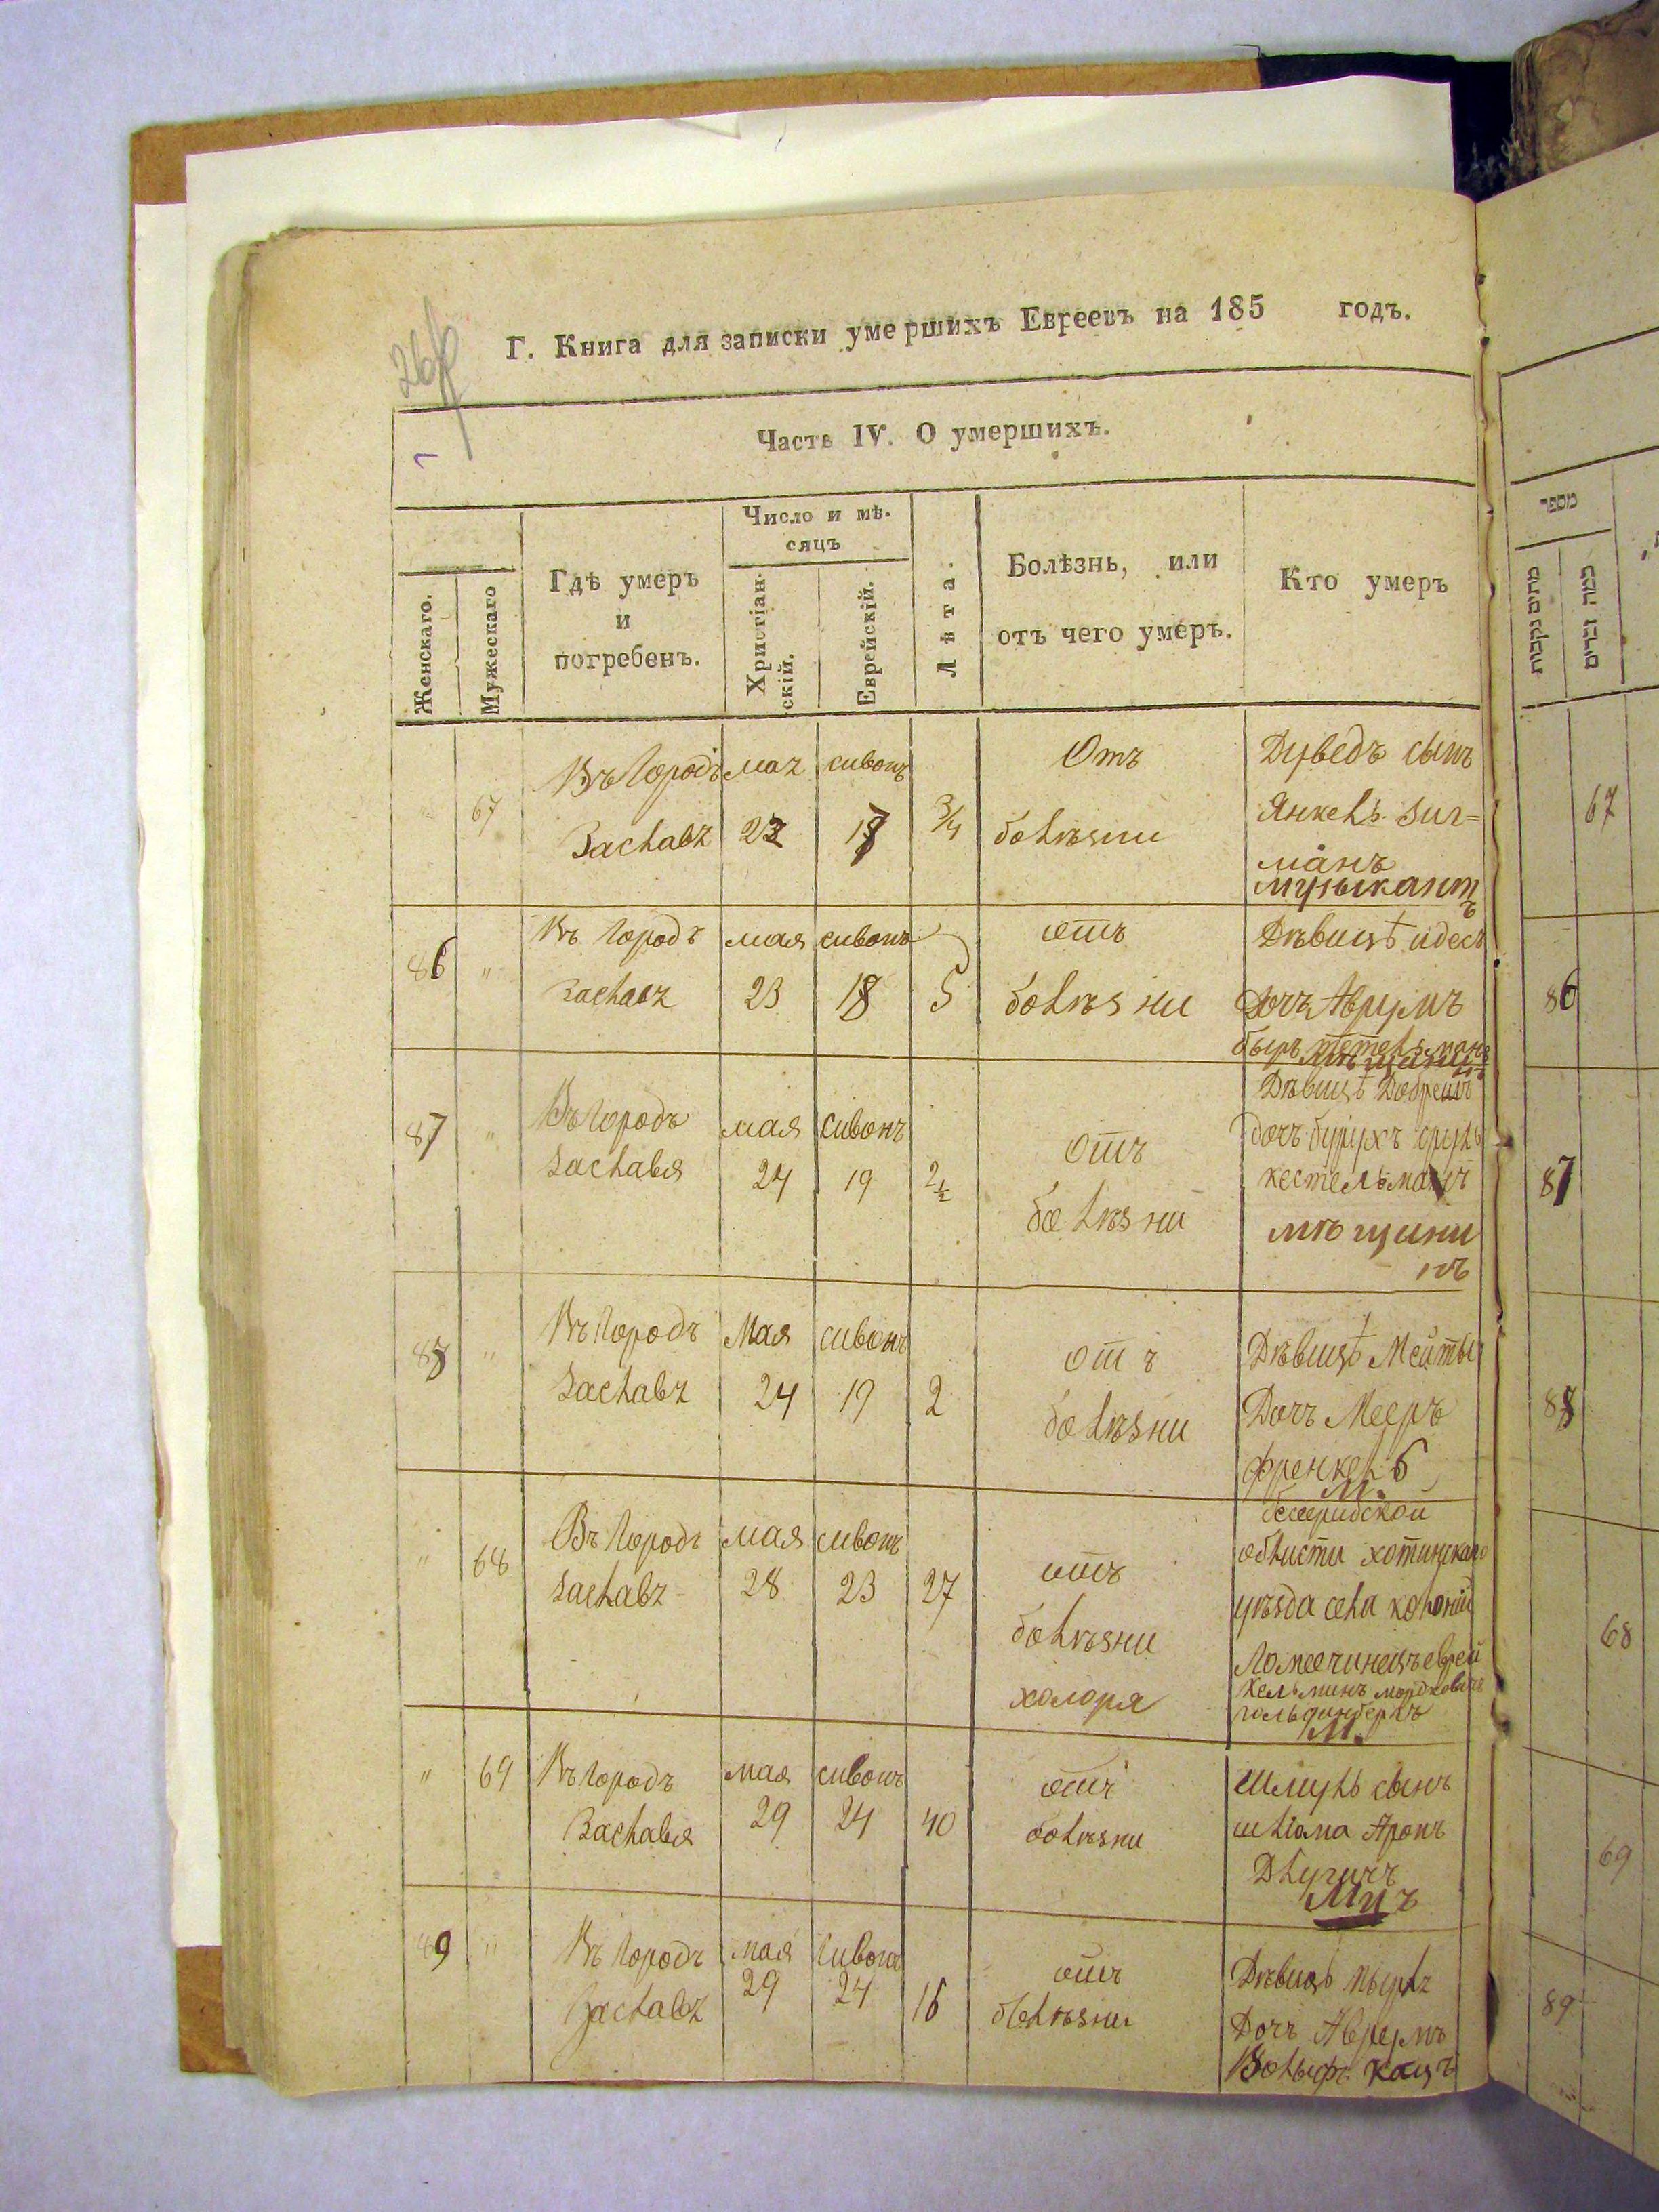 Г. Книга для записки умершихъ Евреевъ на 185 годъ.
Часть IV. О умершихъ.
Женскаго.
Мужескаго
Гдѣ умеръ
и
погребенъ.
Число и мѣ-
сяцъ
Христіан-
скій.
Еврейскій.
Лѣта.
Болѣзнь, или
отъ чего умеръ.
Кто умеръ
67
Въ Городѣ
Заславѣ
23
3/4
Отъ
болѣзни
Дуведъ сынъ
Янкель Зиг=
манъ
музыкантъ
86 "
Въ Городѣ
Заславѣ
мая
23
сивонъ
18
5
отъ
болѣзни
Дѣвицѣ идесъ
Дочъ Аврумъ
87 "
Въ Городѣ
Заславя
мая
24
сивонъ
19
2 1/2
отъ
болѣзни
Дѣвицѣ
дочъ бурухъ сруль
кестельманъ
мѣщани
нъ
88 "
Въ Городѣ
Заславѣ
Мая
24
сивонъ
19
2
отъ
болѣзни
Дѣвицѣ Мейты
Дочъ Мееръ
френкель
М.
" 68
Въ Городѣ
Заславѣ
мая
28
сивонъ
23
27
отъ
болѣзни
холоря
области хотинскаго
уѣзда села колоній
еврей
М.
" 69
Въ Городѣ
Заславя
мая
29
сивонъ
24
40
отъ
болѣзни
Шмуль сынъ
шліома Аронъ
89 "
Въ Городѣ
Заславѣ
мая
29
24
16
отъ
болѣзни
Дѣвицѣ
Дочъ Аврумъ
Вольфъ кацъ
מספר
67
86
87
88
68
69
89